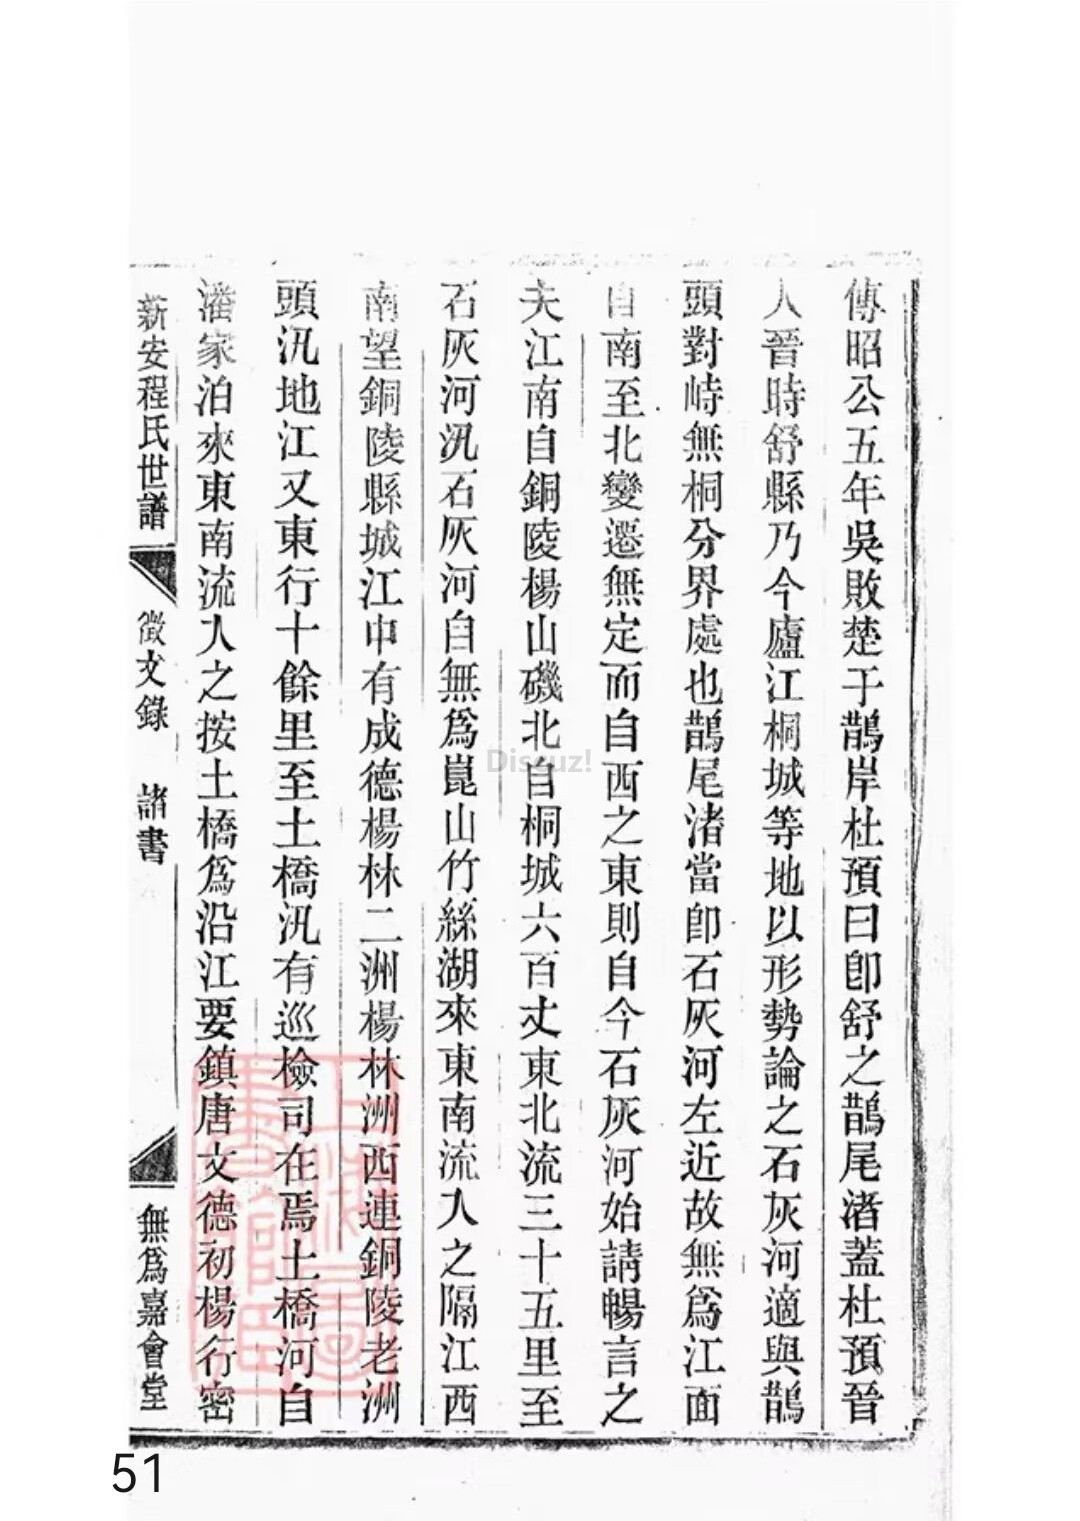 傳昭公五年吳敗楚于鵲岸杜預曰卽舒之鵲尾渚蓋杜預晉
人晉時舒縣乃今廬江桐城等地以形勢論之石灰河適與鵲
頭對峙無桐分界處也鵲尾渚當卽石灰河左近故無爲江面
自南至北變遷無定而自西之東則自今石灰河始請暢言之
夫江南自銅陵楊山磯北自桐城六百丈東北流三十五里至
石灰河汛石灰河自無爲崑山竹絲湖來東南流入之隔江西
南望銅陵縣城江中有成德楊林二洲楊林洲西連銅陵老洲
頭汛地江又東行十餘里至土橋汛有巡檢司在焉土橋河自
潘家泊來東南流入之按土橋爲沿江要鎮唐文德初楊行密
新安程氏世譜 徵文錄 諸書 無爲嘉會堂
Discuz!
51